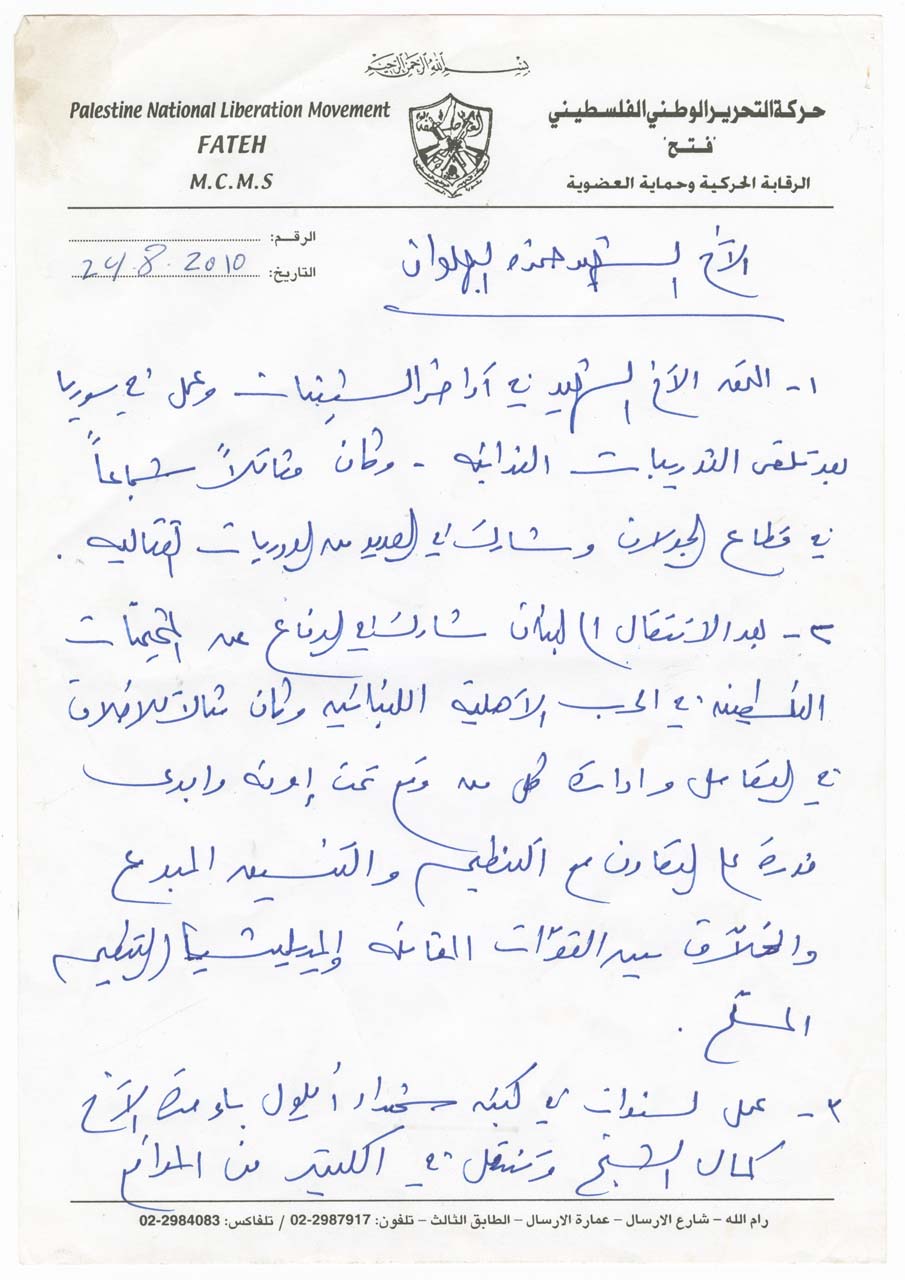 بسم الله الرحمن الرحيم
Palestine National Liberation Movement
FATEH
M.C.M.S
حركة التحرير الوطني الفلسطيني
"فتح"
الرقابة الحركية وحماية العضوية
الرقم:
التاريخ: 24.8.2010
الأخ الشهيد حمزه البهلوان
١- التحق الأخ الشهيد في أواخر الستينات وعمل في سوريا
بعد تلقى التدريبات الفدائيه - وكان مقاتلاً شجاعاً
في قطاع الجولان وشارك في العديد من الدوريات القتاليه.
٢- بعد الانتقال إلى لبنان شارك في الدفاع عن المخيمات
الفلسطينيه في الحرب الأهلية اللبنانيه وكان مثالاً للأخلاق
في التعامل وادارة كل من وقع تحت إمرته وابدى
قدرة على التعاون مع التنظيم والتنسيق المبدع
والخلاّق بين القوّات المقاتله والميليشيا (التنظيم
المسلّح.
٣- عمل لسنوات في كتيبة شهداء أيلول بإمرة الأخ
كمال الشيخ وتنقل في الكثير من المواقع
رام الله – شارع الارسال – عمارة الارسال – الطابق الثالث – تلفون: 2987917-02 / تلفاكس: 2984083-02